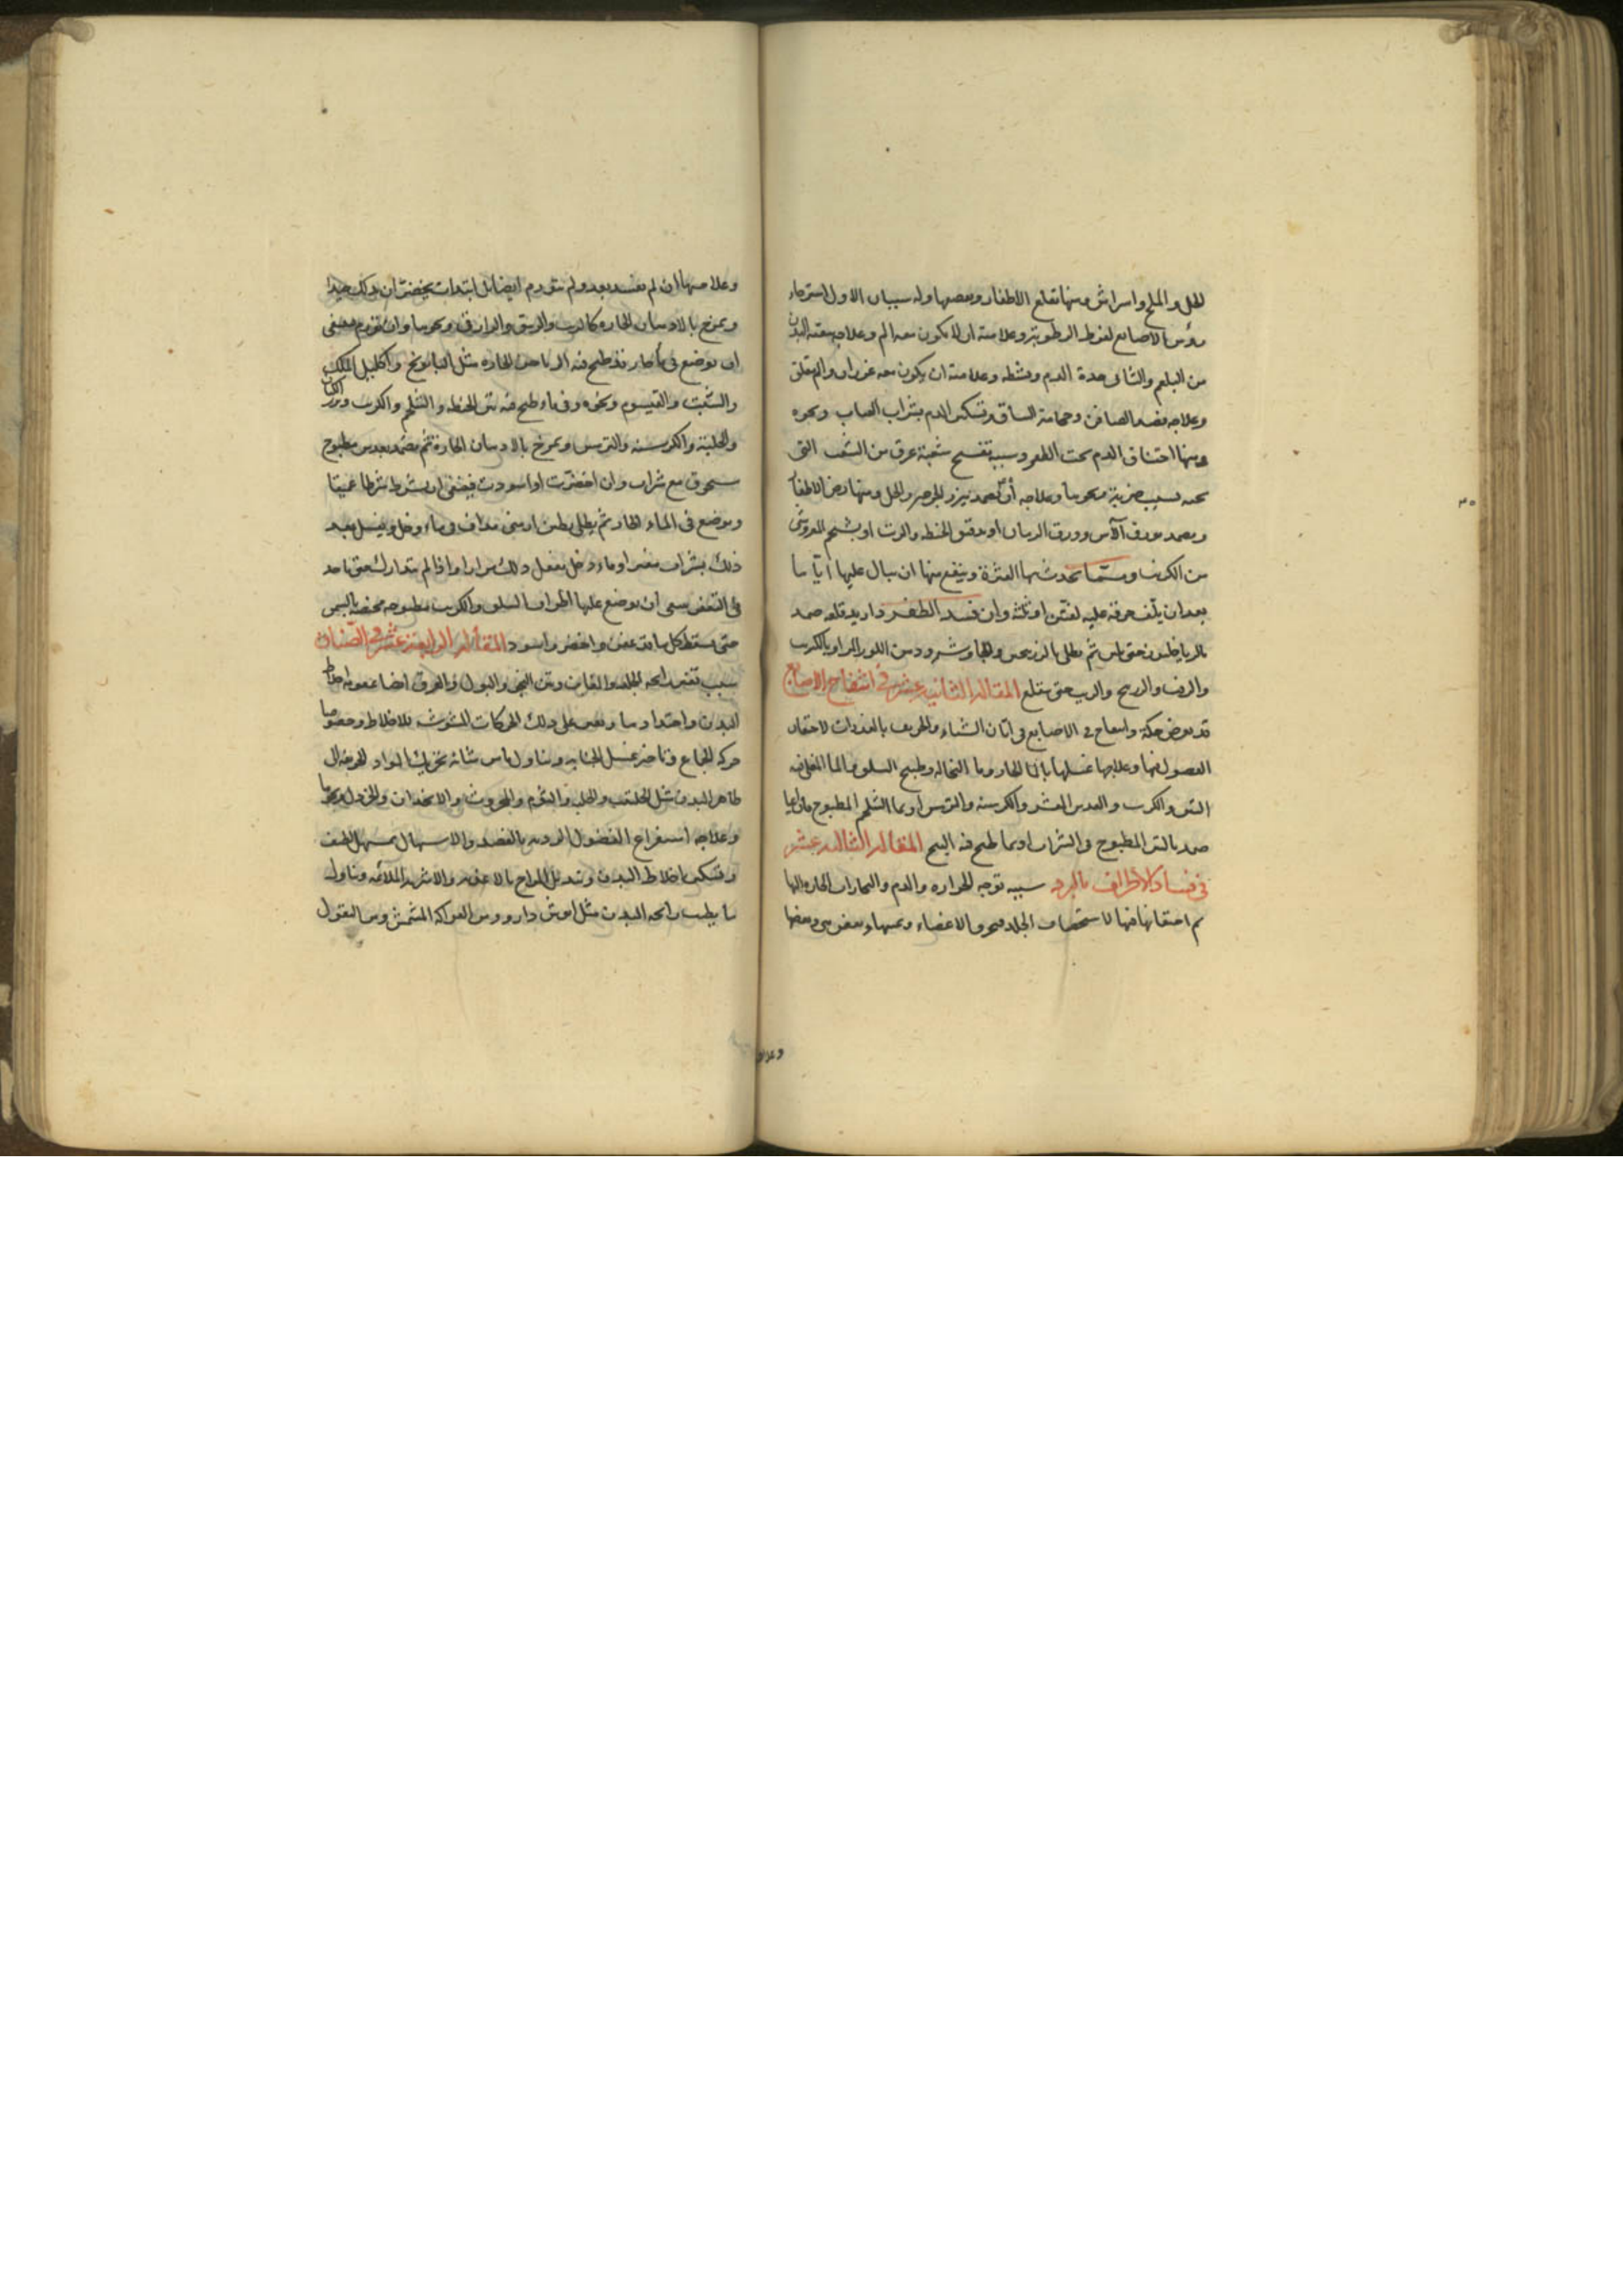 الخل والملح واسراش ومنها تقلع الاظفار وتعصبها وله سببان الاول استرخاء
رؤس الاصابع لفرط الرطوبة وعلامته ان لا يكون معه الم وعلاجه تنقية البدن
من البلغم والثانى حدة الدم وعلامته ان يكون معه ضربان والم قلق
وعلاجه فصد الصافن وحجامة الساق وتسكين الدم بشراب العناب ونحوه
ومنها احتناق الدم تحت الظفر وسببه تفسخ شعبة عرق من الشعب التى
تحته بسبب ضربة ونحوها وعلاجه ان يضمد ببزر الجرجير والخل ومنها رض الاظفار
ويضمد بورق الآس وورق الرمان او بدقيق الحنطة والزيت او بشحم
من الكبريت تحدث بها العثرة وينفع منها ان يبال عليها اياما
بعد ان يلف خرقة عليه لفتين او ثلثة وان فسد الظفر واريد قلعه ضمد
حتى يلين ثم يطلى بالزرنيخين والجاوشير ودهن اللوز المر او بالكبريت
والزيت حتى يتقلع المقالة الثانية عشر فى انتفاخ الاصابع
قد يعرض حكة وانتفاخ فى الاصابع فى ابان الشتاء والخريف بالغدوات لاحتقان
الفضول فيها وعلاجها غسلها بالماء الحار وماء النخالة وطبيخ السلق والماء المغلى فيه
التين والكرنب والعدس المقشر والكرسنة والترمس او بماء الشلجم المطبوخ
ضمد بالتين المطبوخ فى الشراب او بما طبخ فيه المقالة الثالثة عشر
فى فساد الاطراف بالبرد سببه توجه الحرارة والدم والبخارات الحارة اليها
ثم احتقانها فيها لاستحصاف الجلد
وعلامتها
وعلامتها ان لم تفسد بعد ولم تتورم ايضا بل ابتدات تخضر ان يدلك جيدا
ويمرخ بالادهان الحارة كالزيت والزنبق والرازقى ونحوها وان تورم فينبغى
ان توضع فى ماء حار قد طبخ فيه الرياحين الحارة مثل البابونج واكليل الملك
والشبت والقيسوم ونحوه وفى ماء طبخ فيه تبن الحنطة والشلجم والكرنب وبزر الكتان
والحلبة والكرسنة والترمس ويمرخ بالادهان الحارة ثم يضمد بعدس مطبوخ
مسحوق مع شراب وان اخضرت او اسودت فينبغى ان يشرط شرطا عميقا
ويوضع فى الماء الحار ثم يطلى بطين ارمنى مداف فى ماء وخل ويغسل بعد
ذلك بشراب او ماء وخل يفعل ذلك مرارا واذا لم يتدارك حتى ياخذ
فى التعفن ينبغى ان يوضع عليها اطراف السلق والكرنب مطبوخة بالسمن
حتى يسقط كل ما قد عفن واخضر واسود المقالة الرابعة عشر فى الصنان
سبب تغير رائحة الجلد والمغابن ونتن النجو والبول والعرق ايضا عفونة اخلاط
البدن واحتدادها ويعين على ذلك الحركات المشوشة للاخلاط وخصوصا
حركة الجماع وتاخير غسل الجنابة وتناول ما من شانه تحريك المواد العفنة الى
ظاهر البدن مثل الحلتيت والحلبة والثوم والمحروث والانجدان والخردل ونحوها
وعلاجه استفراغ الفضول الردية بالفصد والاسهال بمسهل لطيف
وتسكين اخلاط البدن وتبديل المزاج بالاغذية والاشربة الملائمة وتناول
ما يطيب رائحة البدن مثل انوش دارو ومن الفواكه المشمش ومن البقول